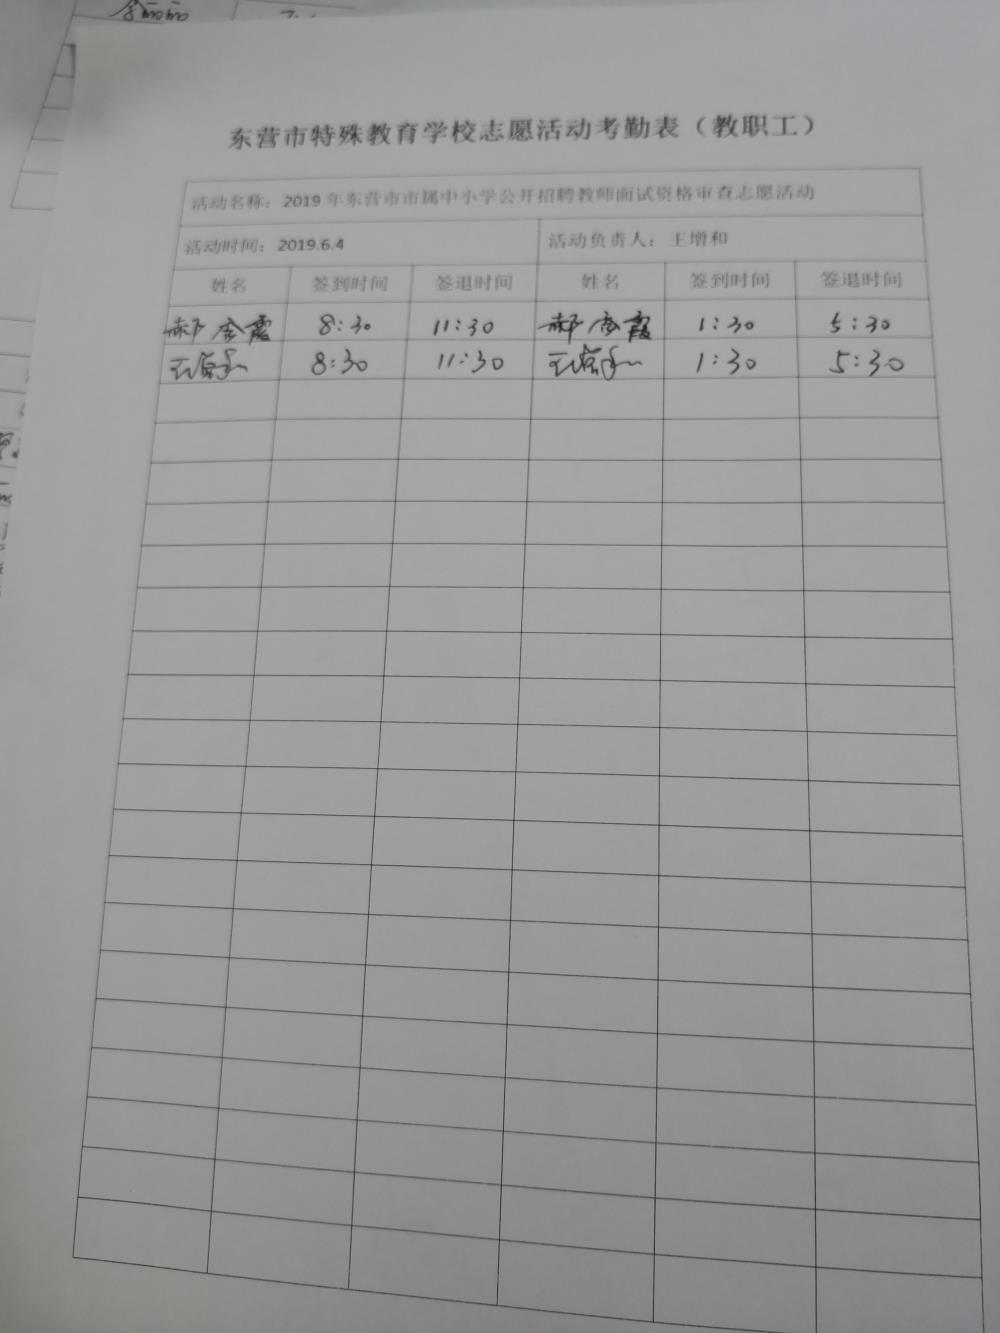 东营市特殊教育学校志愿活动考勤表（教职工）
活动名称：2019年东营市市属中小学公开招聘教师面试资格审查志愿活动
活动时间：2019.6.4 活动负责人：王增和
姓名 签到时间 签退时间 姓名 签到时间 签退时间
郝 霞 8:30 11:30 郝 霞 1:30 5:30
王 8:30 11:30 王 1:30 5:30